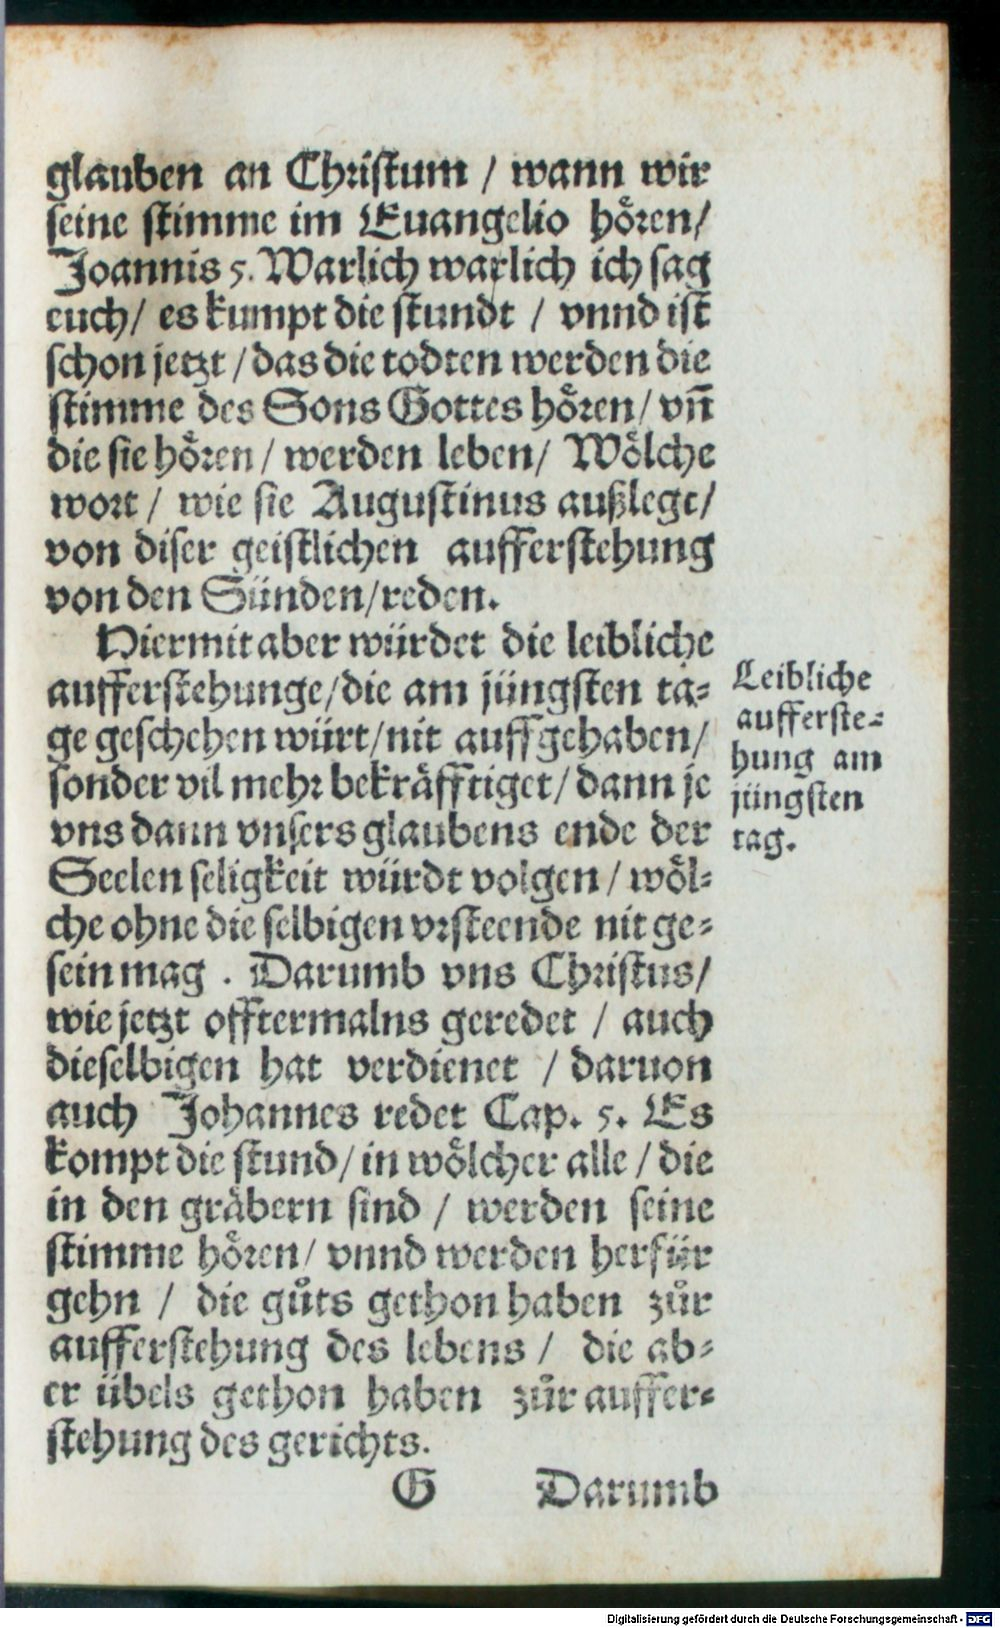 glauben an Christum / wann wir
seine stimme im Euangelio hören/
Joannis 5. Warlich warlich ich sag
euch/ es kumpt die stundt / vnnd ist
schon jetzt / das die todten werden die
stimme des Sons Gottes hören/ vn̄
die sie hören / werden leben/ Wölche
wort / wie sie Augustinus außlegt/
von diser geistlichen aufferstehung
von den Sünden/reden.
Hiermit aber würdet die leibliche
aufferstehunge/die am jüngsten ta=
ge geschehen würt/nit auffgehaben/
sonder vil mehr bekräfftiget/ dann je
vns dann vnsers glaubens ende der
Seelen seligkeit würdt volgen / wöl=
che ohne die selbigen vrsteende nit ge=
sein mag . Darumb vns Christus/
wie jetzt offtermalns geredet / auch
dieselbigen hat verdienet / daruon
auch Johannes redet Cap. 5. Es
kompt die stund/ in wölcher alle / die
in den gräbern sind / werden seine
stimme hören/ vnnd werden herfür
gehn / die gůts gethon haben zůr
aufferstehung des lebens / die ab=
er übels gethon haben zůr auffer=
stehung des gerichts.
G Darumb
Leibliche
aufferste=
hung am
jüngsten
tag.
Digitalisierung gefördert durch die Deutsche Forschungsgemeinschaft - DFG